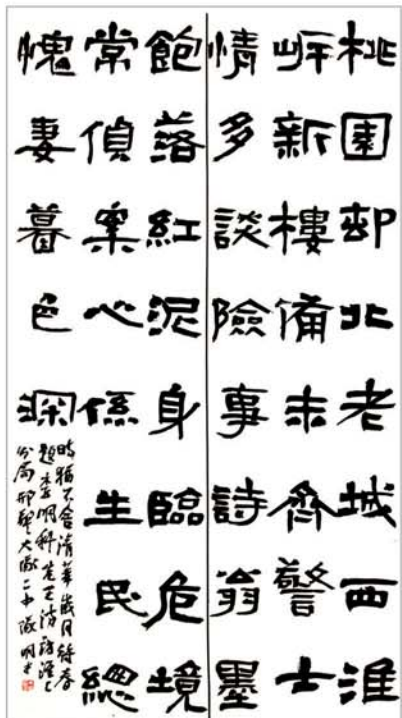 桃園邨北老城西淮
岍新樓備未齊警士
情多談險事詩翁墨
飽落紅泥身臨危境
常偵案心係生民總
愧妻暮色深
時猶不舍清華歲月待春
題李明科先生訪
分局刑警大隊二中隊